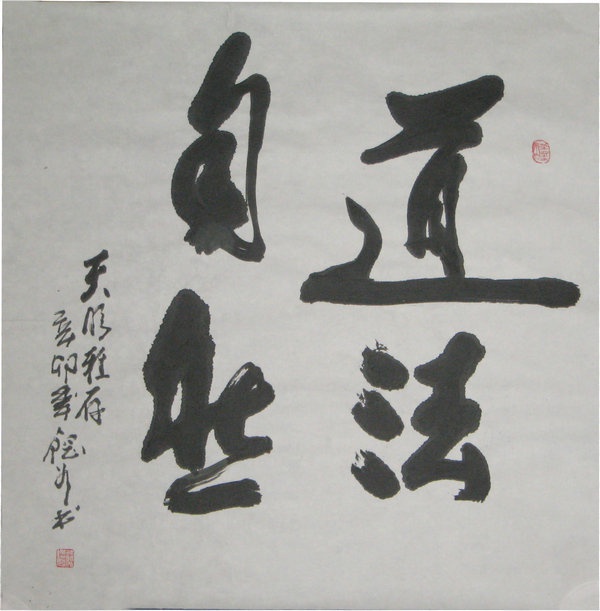 道法
自然
天明雅存
辛卯
书